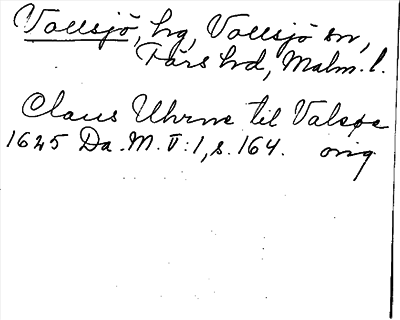 Vallsjö, hg, Vallsjö sn,
Färs hd, Malm. l.
Claus Uhrne til Valsøe
1625 Da. M. V:1, s. 164. orig